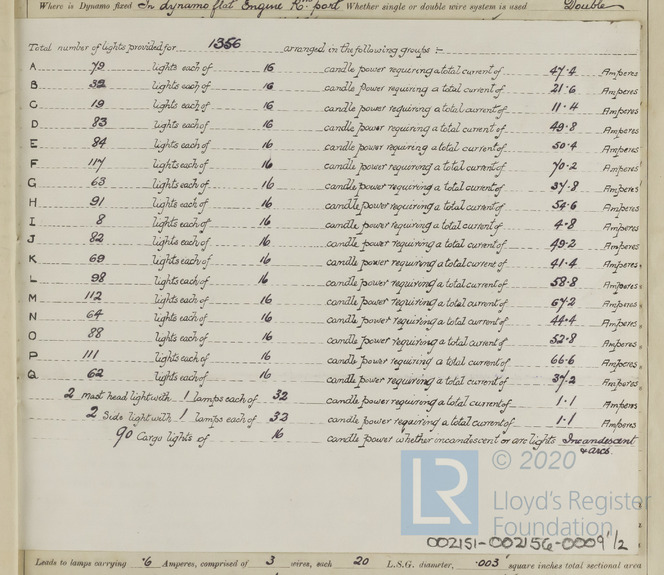 Where is Dynamo fixed In dynamo flat Engine Rm port Whether single or double wire system is used Double
Total number of lights provided for 1356 arranged in the following groups :-
A 79 lights each of 16 candle power requiring a total current of 47.4 Amperes
B lights each of 16 candle power requiring a total current of 21.6 Amperes
C 19 lights each of 16 candle power requiring a total current of 11.4 Amperes
D 83 lights each of 16 candle power requiring a total current of 49.8 Amperes
E 84 lights each of 16 candle power requiring a total current of 50.4 Amperes
F 117 lights each of 16 candle power requiring a total current of 70.2 Amperes
G 63 lights each of 16 candle power requiring a total current of 37.8 Amperes
H 91 lights each of 16 candle power requiring a total current of 54.6 Amperes
I 8 lights each of 16 candle power requiring a total current of 4.8 Amperes
J 82 lights each of 16 candle power requiring a total current of 49.2 Amperes
K 69 lights each of 16 candle power requiring a total current of 41.4 Amperes
L 98 lights each of 16 candle power requiring a total current of 58.8 Amperes
M 112 lights each of 16 candle power requiring a total current of 67.2 Amperes
N 64 lights each of 16 candle power requiring a total current of 44.4 Amperes
O 88 lights each of 16 candle power requiring a total current of 52.8 Amperes
P 111 lights each of 16 candle power requiring a total current of 66.6 Amperes
Q 62 lights each of 16 candle power requiring a total current of 37.2 Amperes
2 Mast head light with 1 lamps each of 32 candle power requiring a total current of 1.1 Amperes
2 Side light with 1 lamps each of 32 candle power requiring a total current of 1.1 Amperes
90 Cargo lights of 16 candle power whether incandescent or arc lights Incandescent
& arcs.
© 2020
LR
Lloyd's Register
Foundation
002151-002156-0009 1/2
Leads to lamps carrying .6 Amperes, comprised of 3 wires, each 20 L.S.G. diameter, .003 square inches total sectional area